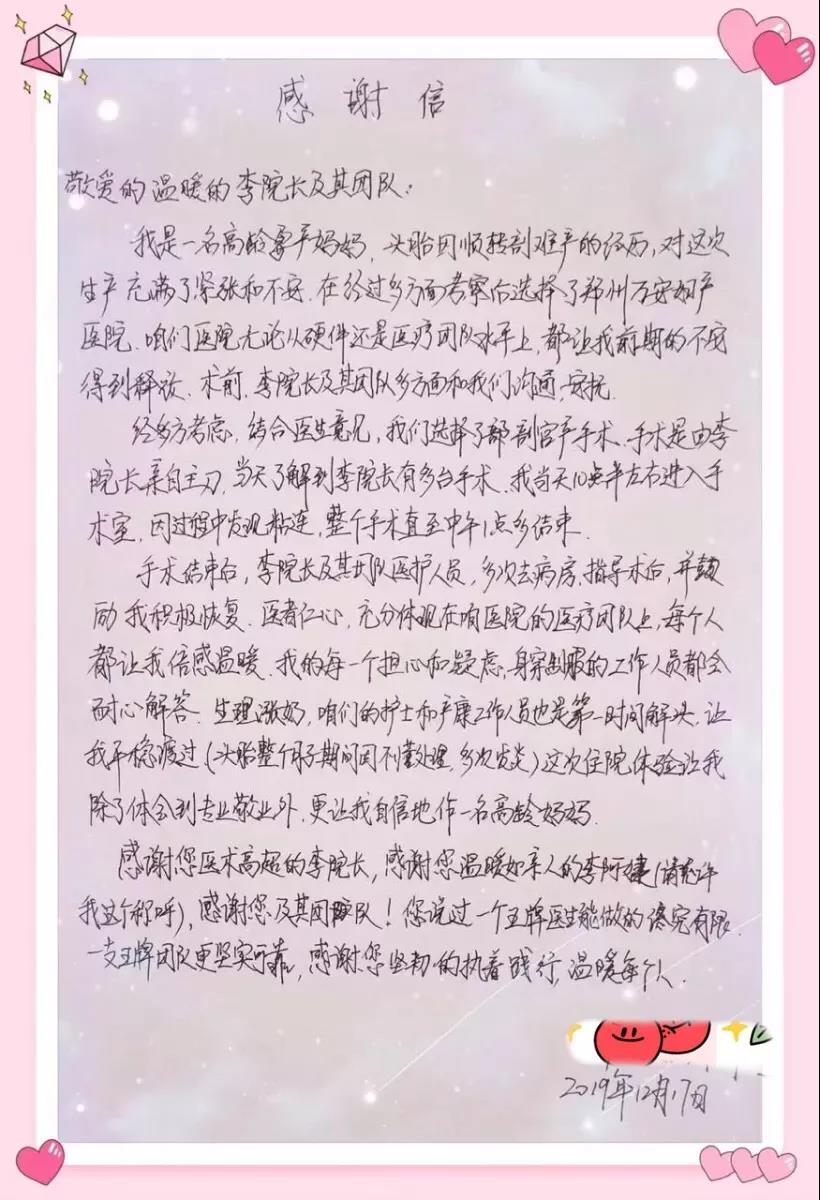 感谢信
敬爱的温暖的李院长及其团队：
我是一名高龄拿产妈妈，头胎因顺转剖难产的经历，对这次
生产充满了紧张和不安．在经过多方面考察后选择了郑州万安妇产
医院．咱们医院无论从硬件还是医疗团队水平上，都让我前期的不安
得到释放．术前．李院长及其团队多方面和我们沟通，安抚．
经多方考虑．结合医生意见，我们选择了剖宫产手术．手术是由李
院长亲自主刀．当天了解到李院长有多台手术．我当天10点半左右进入手
术室，因过程中发现粘连，整个手术直至中午1点多结束．
手术结束后，李院长及其团队医护人员，多次去病房，指导术后，并鼓
励我积极恢复．医者仁心，充分体现在咱医院的医疗团队上，每个人
都让我倍感温暖．我的每一个担心和疑虑，身穿制服的工作人员都会
耐心解答．生理涨奶，咱们的护士和产康工作人员也是第一时间解决，让
我平稳渡过（头胎整个月子期间因不懂处理，多次发炎）这次住院体验让我
除了体会到专业敬业外．更让我自信地作一名高龄妈妈．
感谢您医术高超的李院长，感谢您温暖如亲人的李阿姨（请允许
我这个称呼），感谢您及其团队！您说过一个王牌医生能做的终究有限．
一支王牌团队更坚实可靠，感谢您坚韧的执着践行，温暖每个人．
2019年12月17日